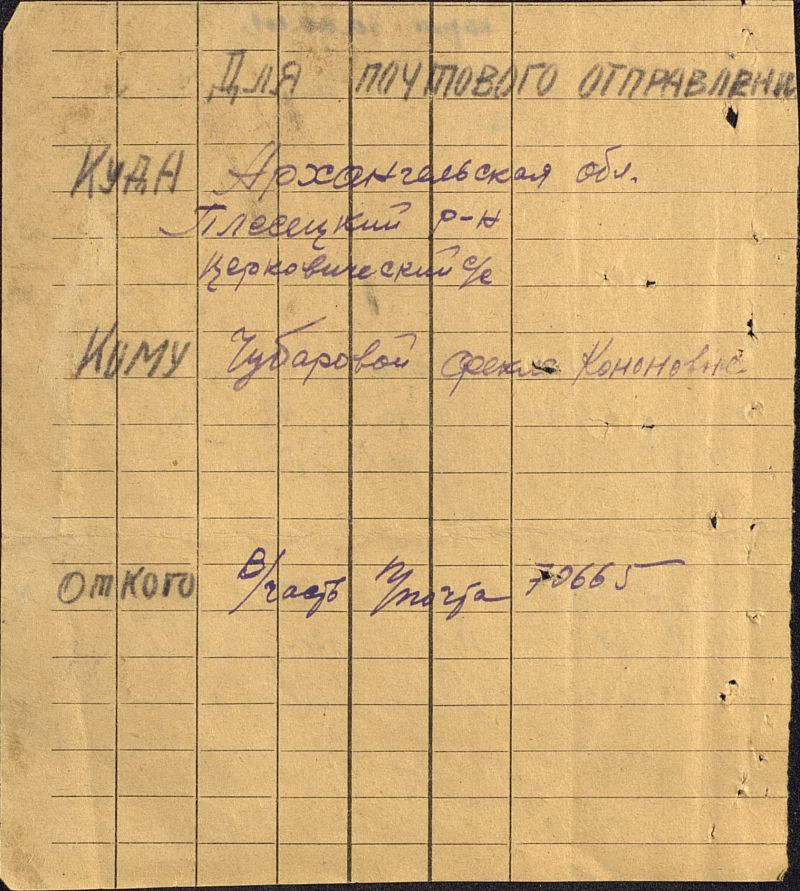 Для почтового отправлени
Куда Архангельская обл.
Плесецкий р-н
Церковический с/с
Кому Чубаровой Фекле Кононовне
От кого В/часть п/почта 70665